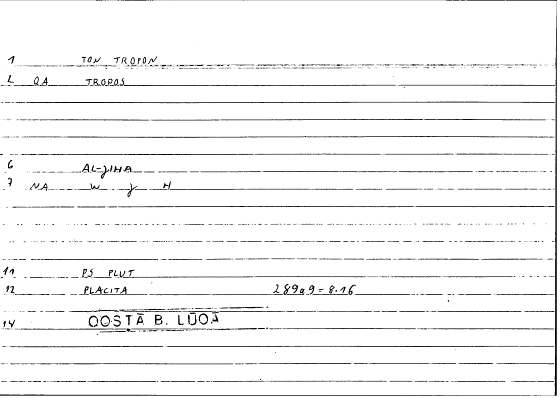 1 TON TROPON
L QA TROPOS
6 AL-JIHA
7 NA W J H
11 PS PLUT
12 PLACITA 289a9 = 8.16
14 QOSTĀ B. LŪQĀ